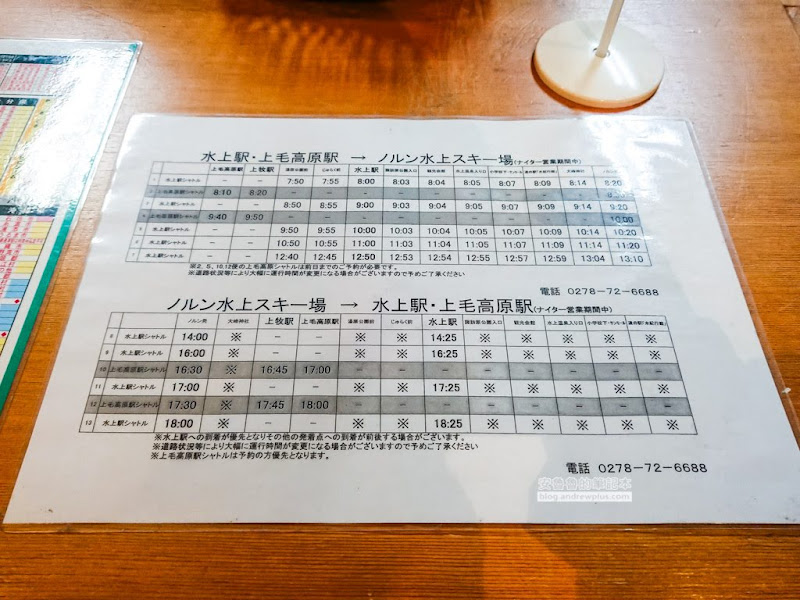 水上駅・上毛高原駅 → ノルン水上スキー場(ナイター営業期間中)
上毛高原駅 上牧駅 湯原公園前 じゅらく前 水上駅 諏訪原公園入口 観光会館 水上温泉入り口 小学校下・サンレール 湯の駅(水紀行館) 大崎神社
水上駅シャトル － － 7:50 7:55 8:00 8:03 8:04 8:05 8:07 8:09 8:14 8:20
上毛高原駅シャトル 8:10 8:20 － － － － － － － － －
水上駅シャトル － － 8:50 8:55 9:00 9:03 9:04 9:05 9:07 9:09 9:14 9:20
4 上毛高原駅シャトル 9:40 9:50 － － － － － － － － － 10:00
5 水上駅シャトル － － 9:50 9:55 10:00 10:03 10:04 10:05 10:07 10:09 10:14 10:20
6 水上駅シャトル － － 10:50 10:55 11:00 11:03 11:04 11:05 11:07 11:09 11:14 11:20
7 水上駅シャトル － － 12:40 12:45 12:50 12:53 12:54 12:55 12:57 12:59 13:04 13:10
※2、5、10,12便の上毛高原シャトルは前日までのご予約が必要です。
※道路状況等により大幅に運行時間が変更になる場合がございますので予めご了承ください
電話 0278-72-6688
ノルン水上スキー場 → 水上駅・上毛高原駅(ナイター営業期間中)
ノルン発 大崎神社 上牧駅 上毛高原駅 湯原公園前 じゅらく前 水上駅 諏訪原公園入口 観光会館 水上温泉入り口 小学校下・サンレール 湯の駅(水紀行館)
8 水上駅シャトル 14:00 ※ － － ※ ※ 14:25 ※ ※ ※ ※ ※
9 水上駅シャトル 16:00 ※ － － ※ ※ 16:25 ※ ※ ※ ※ ※
10 上毛高原駅シャトル 16:30 ※ 16:45 17:00 － － － － － － － －
11 水上駅シャトル 17:00 ※ － － ※ ※ 17:25 ※ ※ ※ ※ ※
12 上毛高原駅シャトル 17:30 ※ 17:45 18:00 － － － － － － － －
13 水上駅シャトル 18:00 ※ － － ※ ※ 18:25 ※ ※ ※ ※ ※
※水上駅への到着が優先となりその他の発着点への到着が前後する場合がございます。
※道路状況等により大幅に運行時間が変更になる場合がございますので予めご了承ください
※上毛高原駅シャトルは予約の方優先となります。
電話 0278-72-6688
安魯魯的筆記本
blog.andrewplus.com